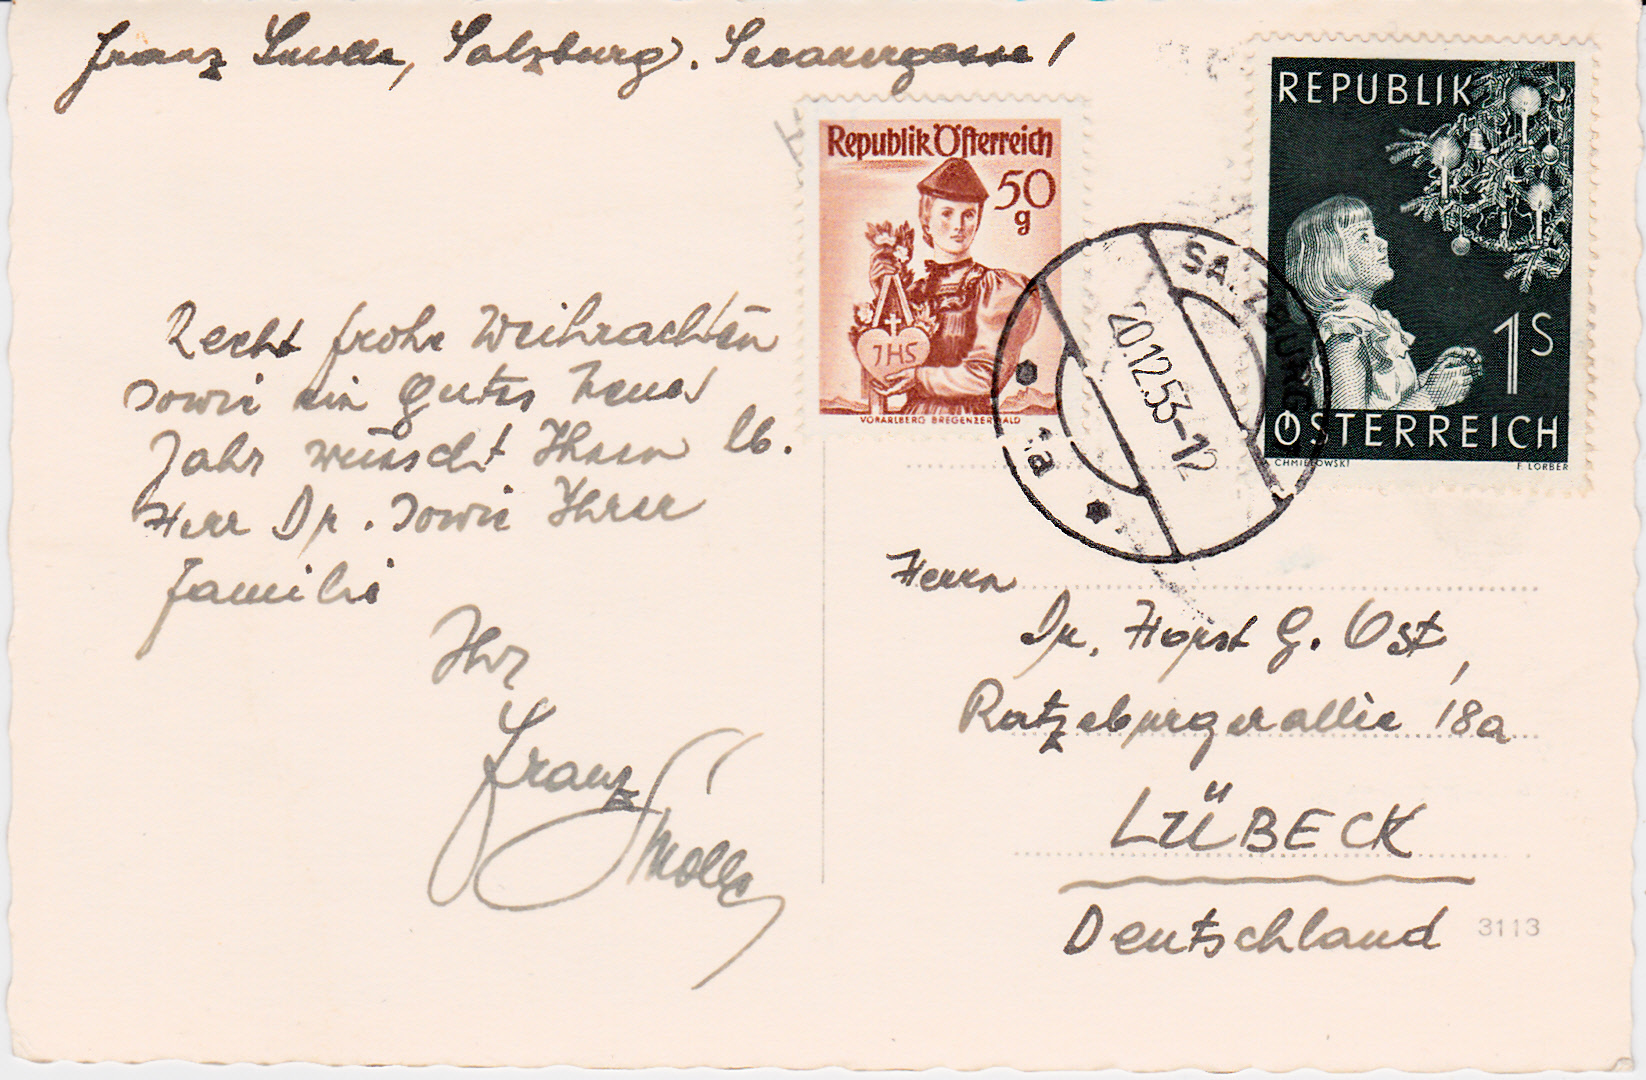 Franz Smolle, Salzburg. Seeauergasse 1
Republik Österreich
50
g
JHS
VORARLBERG BREGENZERWALD
REPUBLIK
1S
ÖSTERREICH
CHMIELOWSKI F. LORBER
SALZBURG
20.12.53-12
1a
Recht frohe Weihnachten
sowie ein gutes neues
Jahr wünscht Ihnen lb.
Herr Dr. sowie Ihrer
Familie
Ihr
Franz
Smolle
Herrn
Dr. Horst G. Ost,
Ratzeburgerallee 18a
LÜBECK
Deutschland
3113